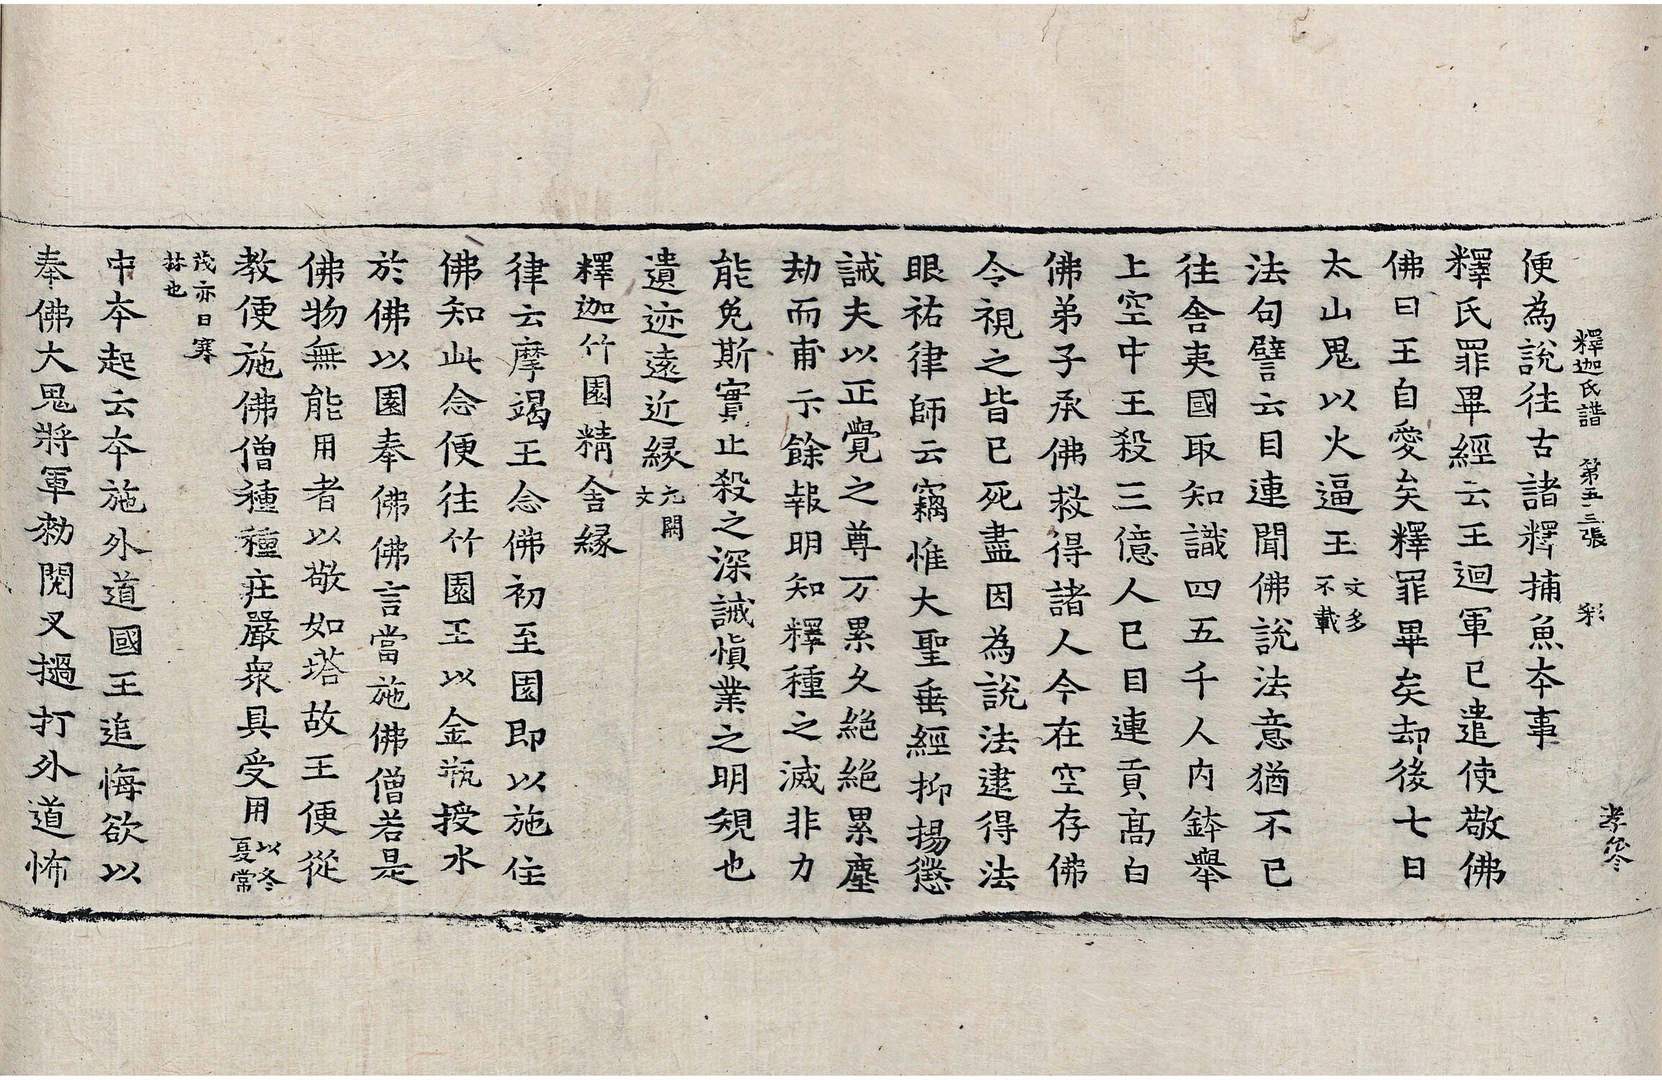 釋迦氏譜 第五十三張 彩
便為說往古諸釋捕魚夲事
釋氏罪畢經云王迴軍已遣使敬佛
佛曰王自愛矣釋罪畢矣却後七日
太山鬼以火逼王文多不載
法句譬云目連聞佛說法意猶不已
往舍夷國取知識四五千人內鉢舉
上空中王殺三億人已目連貢高白
佛弟子承佛救得諸人今在空存佛
令視之皆已死盡因為說法逮得法
眼祐律師云竊惟大聖垂經抑揚懲
誡夫以正覺之尊万累久絕絕累塵
劫而甫示餘報明知釋種之滅非力
能免斯實止殺之深誡慎業之明規也
遺迹遠近縁元闕文
釋迦竹園精舍縁
律云摩竭王念佛初至園即以施住
佛知此念便往竹園王以金瓶授水
於佛以園奉佛佛言當施佛僧若是
佛物無能用者以敬如塔故王便從
教便施佛僧種種莊嚴衆具受用以冬夏常
茂亦曰寒林也
中夲起云夲施外道國王追悔欲以
奉佛大鬼將軍勑閱叉撾打外道怖